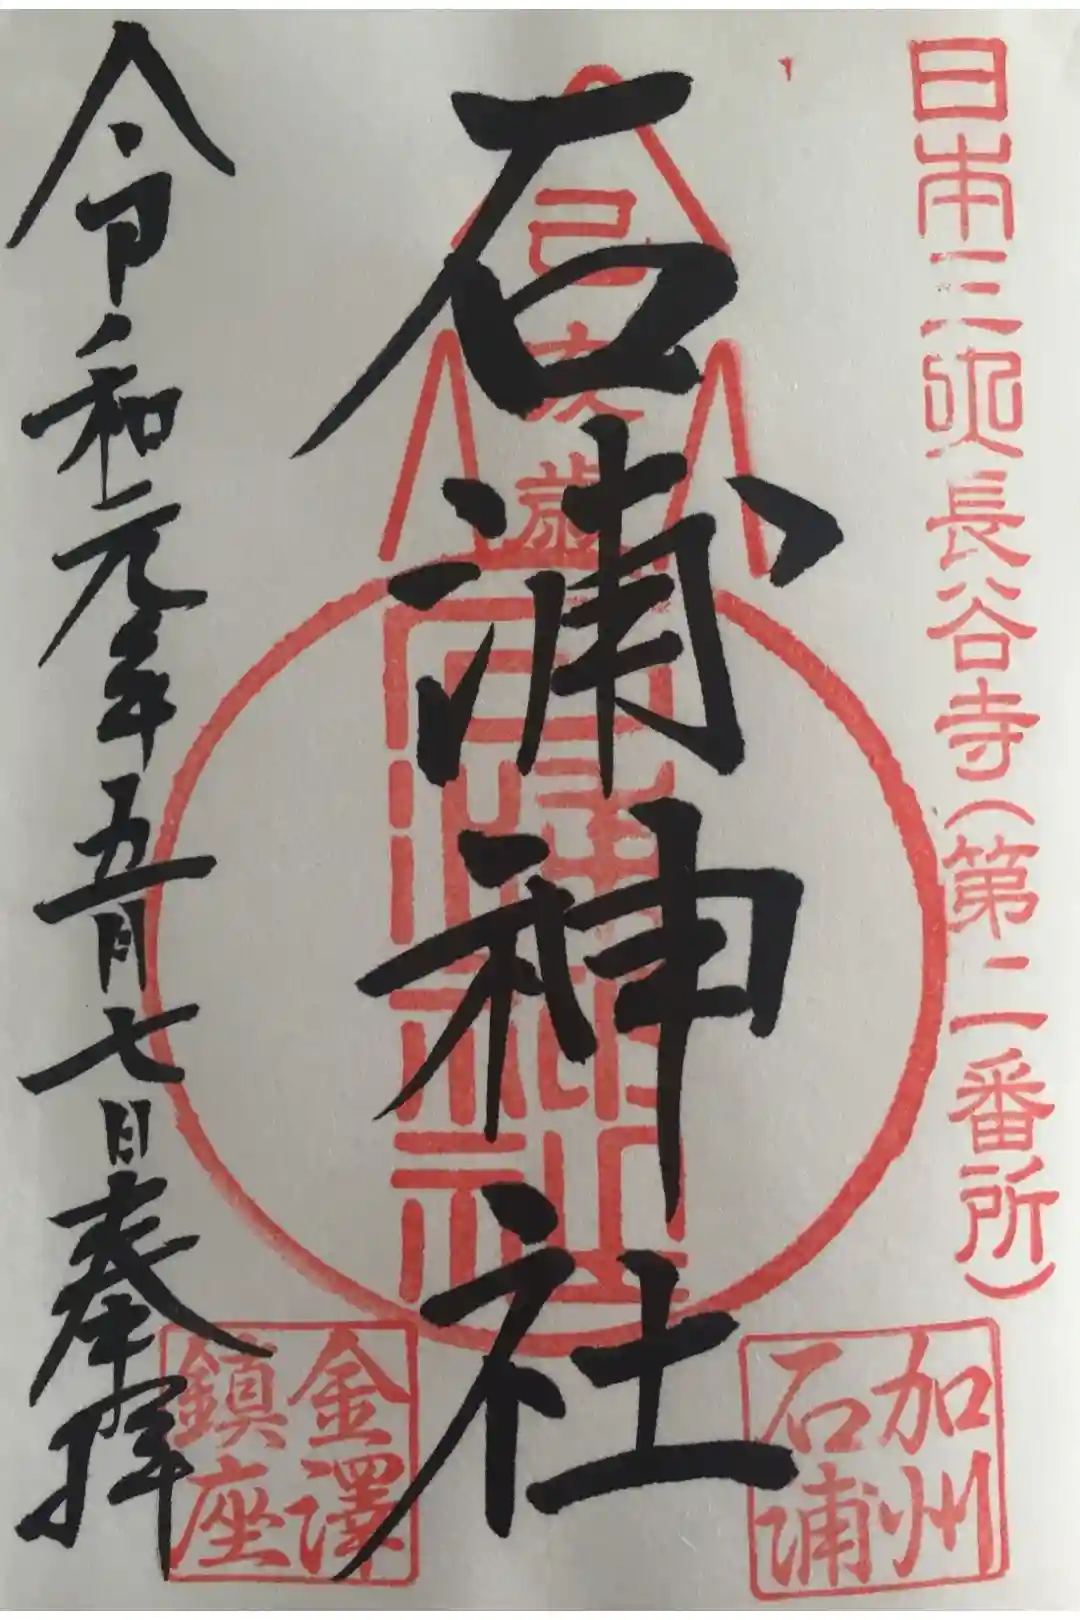 日本三処長谷寺(第二番所)
加州
石浦
己亥歳
石浦神社
石浦神社
金澤
鎮座
令和元年五月七日奉拝